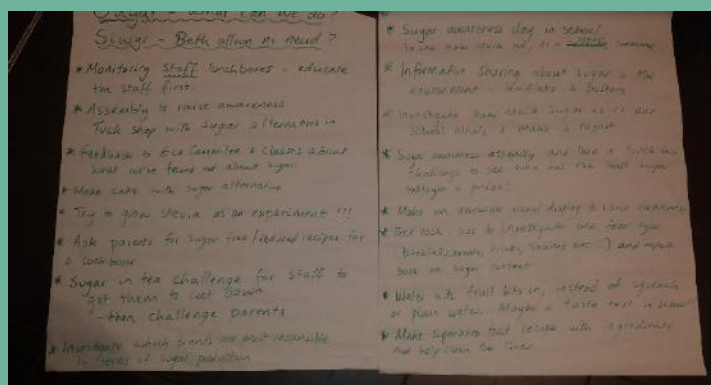 Sugar - What can we do?
Siwgr - Beth allwn ni neud?
* Monitoring staff lunchboxes - educate
the staff first.
* Assembly to raise awareness
Tuck shop with sugar alternatives in
* Feedback to Eco Committee & classes about
what we've found out about sugar.
* Make cake with sugar alternative
* Try to grow stevia as an experiment !!!
* Ask parents for sugar free/reduced recipes for
a cookbook
* Sugar in tea challenge for staff to
get them to cut down
- then challenge parents
* Investigate which brands are most responsible
in terms of sugar production
* Sugar awareness day in school
* Information sharing about sugar & the
environment - leaflets & posters
* Investigate how much sugar is in our
school meals & make a report
* Sugar awareness assembly and then a lunch box
challenge to see who has the least sugar
* Make an awesome visual display to raise awareness
* Get each class to investigate one food type
and report
back on sugar content
* Water with fruit bits in, instead of squash
or plain water. Maybe a taste test in school?
* Make superhero food recipe with ingredients
that help clean the liver.